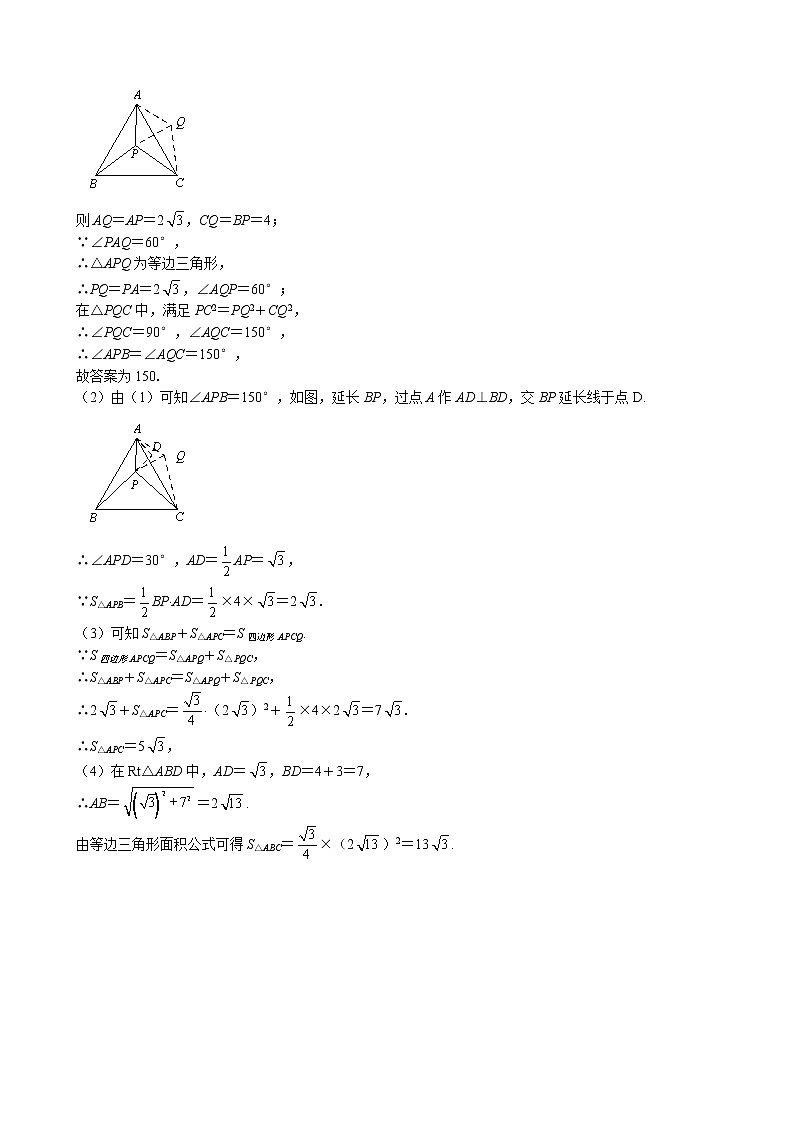 A
Q
P
B
C
则AQ=AP=2√3,CQ=BP=4;
∵∠PAQ=60°,
∴△APQ为等边三角形,
∴PQ=PA=2√3,∠AQP=60°;
在△PQC中,满足PC²=PQ²+CQ²,
∴∠PQC=90°,∠AQC=150°,
∴∠APB=∠AQC=150°,
故答案为150.
(2)由(1)可知∠APB=150°,如图,延长BP,过点A作AD⊥BD,交BP延长线于点D.
A
D
Q
P
B
C
∴∠APD=30°,AD=1/2AP=√3,
∵S△APB=1/2BP·AD=1/2×4×√3=2√3.
(3)可知S△ABP+S△APC=S四边形APCQ.
∵S四边形APCQ=S△APQ+S△PQC,
∴S△ABP+S△APC=S△APQ+S△PQC,
∴2√3+S△APC=√3/4·(2√3)²+1/2×4×2√3=7√3.
∴S△APC=5√3,
(4)在Rt△ABD中,AD=√3,BD=4+3=7,
∴AB=√((√3)²+7²)=2√13.
由等边三角形面积公式可得S△ABC=√3/4×(2√13)²=13√3.